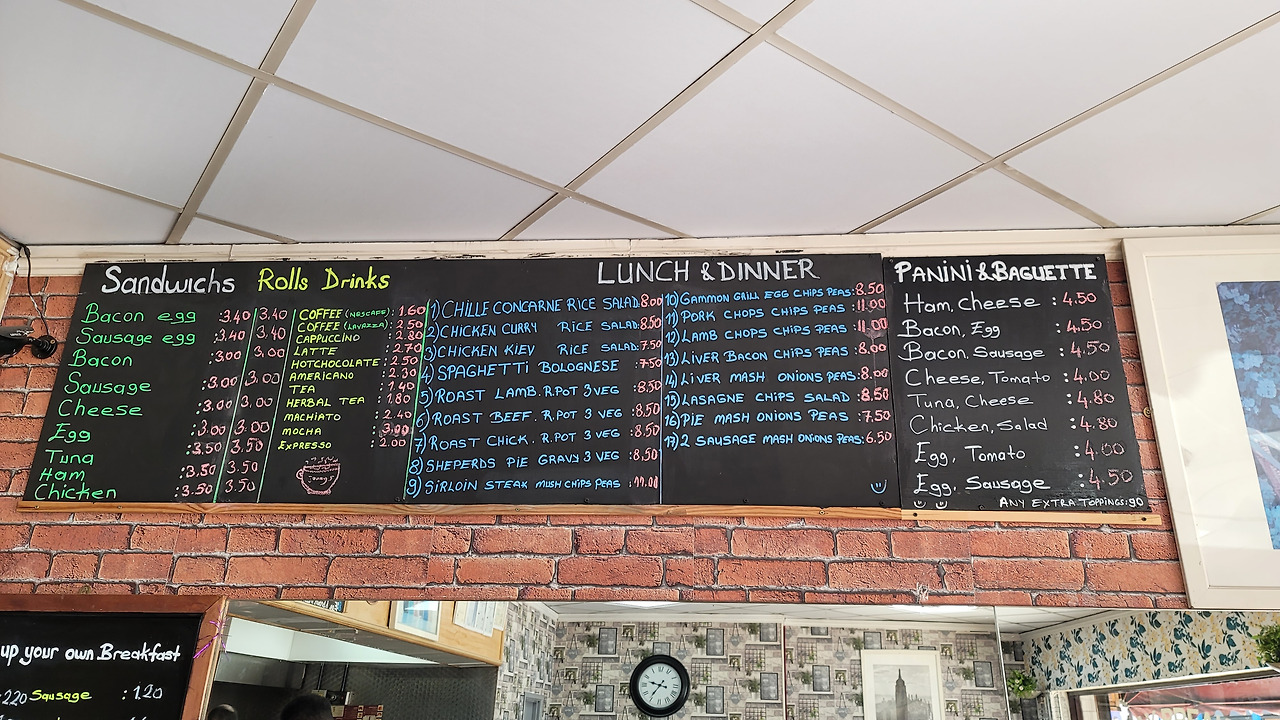 Sandwichs Rolls Drinks
Bacon egg :3.40 3.40
Sausage egg :3.40 3.40
Bacon :3.00 3.00
Sausage :3.00 3.00
Cheese :3.00 3.00
Egg :3.00 3.00
Tuna :3.50 3.50
Ham :3.50 3.50
Chicken :3.50 3.50
COFFEE (NESCAFE): 1.60
COFFEE (LAVAZZA): 2.50
CAPPUCCINO : 2.80
LATTE : 2.70
HOTCHOCOLATE : 2.50
AMERICANO : 2.30
TEA : 1.40
HERBAL TEA : 1.80
MACHIATO : 2.40
MOCHA : 3.00
EXPRESSO : 2.00
LUNCH & DINNER
1) CHILLE CONCARNE RICE SALAD 8.00
2) CHICKEN CURRY RICE SALAD: 8.50
3) CHICKEN KIEV RICE SALAD: 7.50
4) SPAGHETTI BOLOGNESE : 7.50
5) ROAST LAMB. R.POT 3 VEG : 8.50
6) ROAST BEEF. R.POT 3 VEG : 8.50
7) ROAST CHICK. R.POT 3 VEG : 8.50
8) SHEPERDS PIE GRAVY 3 VEG : 8.50
9) SIRLOIN STEAK MUSH CHIPS PEAS : 11.00
10) GAMMON GRILL EGG CHIPS PEAS: 8.50
11) PORK CHOPS CHIPS PEAS : 11.00
12) LAMB CHOPS CHIPS PEAS : 11.00
13) LIVER BACON CHIPS PEAS : 8.00
14) LIVER MASH ONIONS PEAS: 8.00
15) LASAGNE CHIPS SALAD : 8.50
16) PIE MASH ONIONS PEAS : 7.50
17) 2 SAUSAGE MASH ONIONS PEAS: 6.50
PANINI & BAGUETTE
Ham, Cheese : 4.50
Bacon, Egg : 4.50
Bacon, Sausage : 4.50
Cheese, Tomato : 4.00
Tuna, Cheese : 4.80
Chicken, Salad : 4.80
Egg, Tomato : 4.00
Egg, Sausage : 4.50
ANY EXTRA TOPPINGS: 90
up your own Breakfast
220 Sausage : 1.20